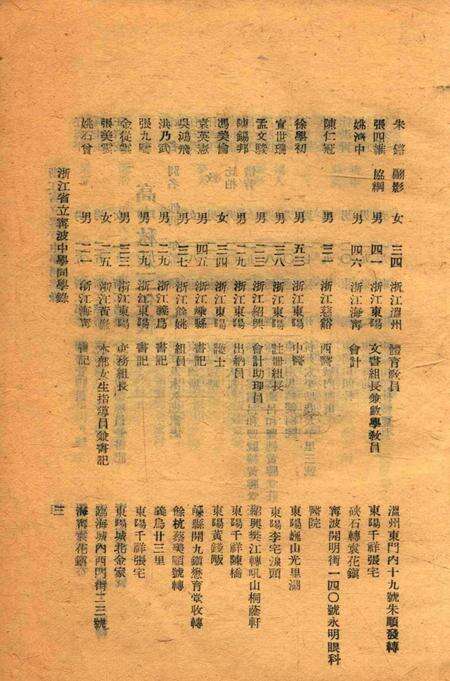 朱 鏡 顧影 女 三四 浙江溫州 體育教員 溫州東門內十九號朱順發轉
張四維 協綱 男 四一 浙江東陽 文書組長兼數學敎員 東陽千祥張宅
姚濟中 男 四六 浙江海甯 會計 硤石轉袁花鎭
陳仁冠 男 三一 浙江慈谿 西醫 甯波開明街一四〇號永明眼科
醫院
徐學初 男 五三 浙江東陽 中醫 東陽巍山光里湖
宣世璣 男 三八 浙江東陽 註冊組長 東陽李宅湖頭
孟文駿 男 二三 浙江紹興 會計助理員 紹興樊江轉吼山桐蔭軒
陳錫邦 男 二九 浙江東陽 出納員 東陽千祥陳橋
馮美倫 女 三四 浙江東陽 護士 東陽黃錢畈
袁英憲 男 四五 浙江嵊縣 書記 嵊縣開九鎭憲育堂收轉
吳鴻飛 男 三七 浙江餘姚 組員 餘杭蔡美順號轉
洪乃武 男 二九 浙江義烏 書記 義烏廿三里
張九 男 二九 浙江東陽 書記 東陽千祥張宅
金從 男 三三 浙江東陽 庶務組長 東陽城北金家
張美雲 女 二五 浙江黃巖 本部女生指導員兼書記 臨海城內西門街二三號
姚石曾 男 二一 浙江海甯 書記 海甯袁花鎭
浙江省立甯波中學同學錄